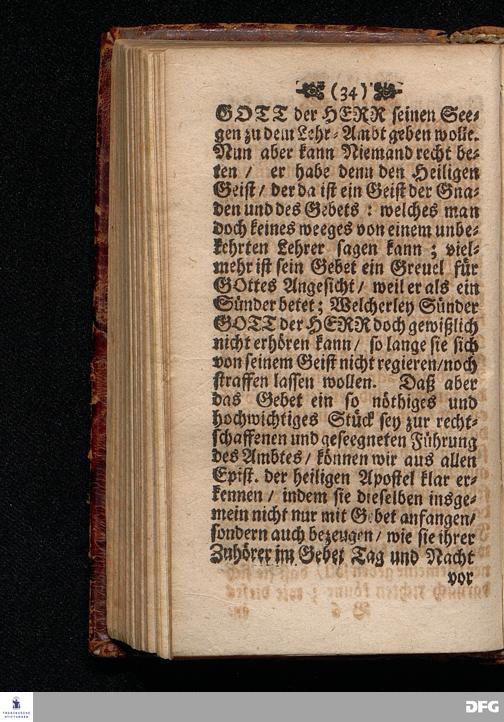 (34)
GOTT der HERR seinen See-
gen zu dem Lehr-Ambt geben wolle.
Nun aber kann Niemand recht be-
ten / er habe denn den Heiligen
Geist / der da ist ein Geist der Gna-
den und des Gebets : welches man
doch keines weeges von einem unbe-
kehrten Lehrer sagen kann ; viel-
mehr ist sein Gebet ein Greuel für
GOttes Angesicht / weil er als ein
Sünder betet ; Welcherley Sünder
GOTT der HERR doch gewißlich
nicht erhören kann / so lange sie sich
von seinem Geist nicht regieren / noch
straffen lassen wollen. Daß aber
das Gebet ein so nöthiges und
hochwichtiges Stück sey zur recht-
schaffenen und geseegneten Führung
des Ambtes / können wir aus allen
Epist. der heiligen Apostel klar er-
kennen / indem sie dieselben insge-
mein nicht nur mit Gebet anfangen /
sondern auch bezeugen / wie sie ihrer
Zuhörer im Gebet Tag und Nacht
vor
DFG